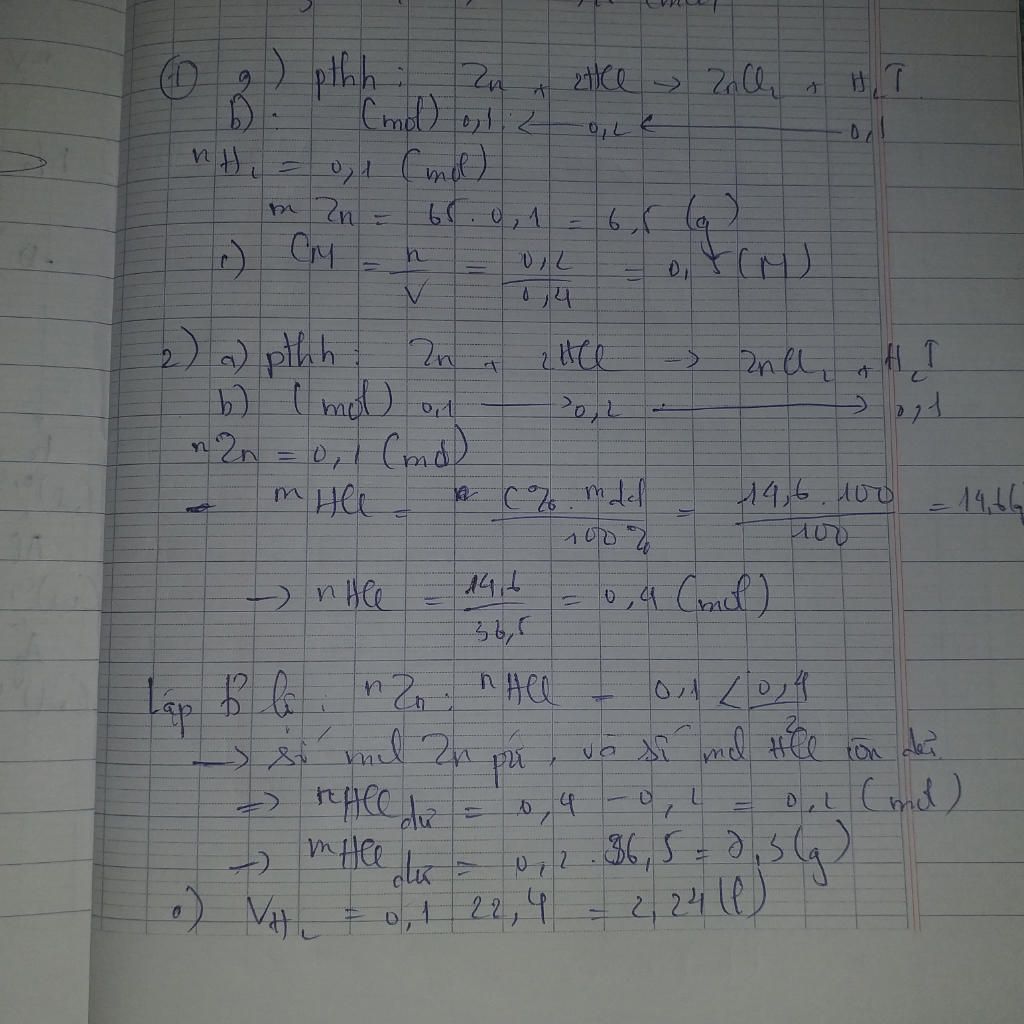 ① a) pthh: Zn + 2HCl → ZnCl₂ + H₂↑
b): (mol) 0,1 ← 0,2 ← 0,1
nH₂ = 0,1 (mol)
m Zn = 65 . 0,1 = 6,5 (g)
c) CM = n/V = 0,2/0,4 = 0,5 (M)
2) a) pthh: Zn + 2HCl → ZnCl₂ + H₂↑
b) (mol) 0,1 → 0,2 → 0,1
nZn = 0,1 (mol)
- mHCl = C% . mdd/100% = 14,6 . 100/100 = 14,6g
→ nHCl = 14,6/36,5 = 0,4 (mol)
Lập tỉ lệ: nZn : nHCl = 0,1 < 0,4/2
→ số mol Zn pứ, và số mol HCl còn dư
⇒ nHCl dư = 0,4 - 0,2 = 0,2 (mol)
→ mHCl dư = 0,2 . 36,5 = 7,3 (g)
c) VH₂ = 0,1 22,4 = 2,24 (l)